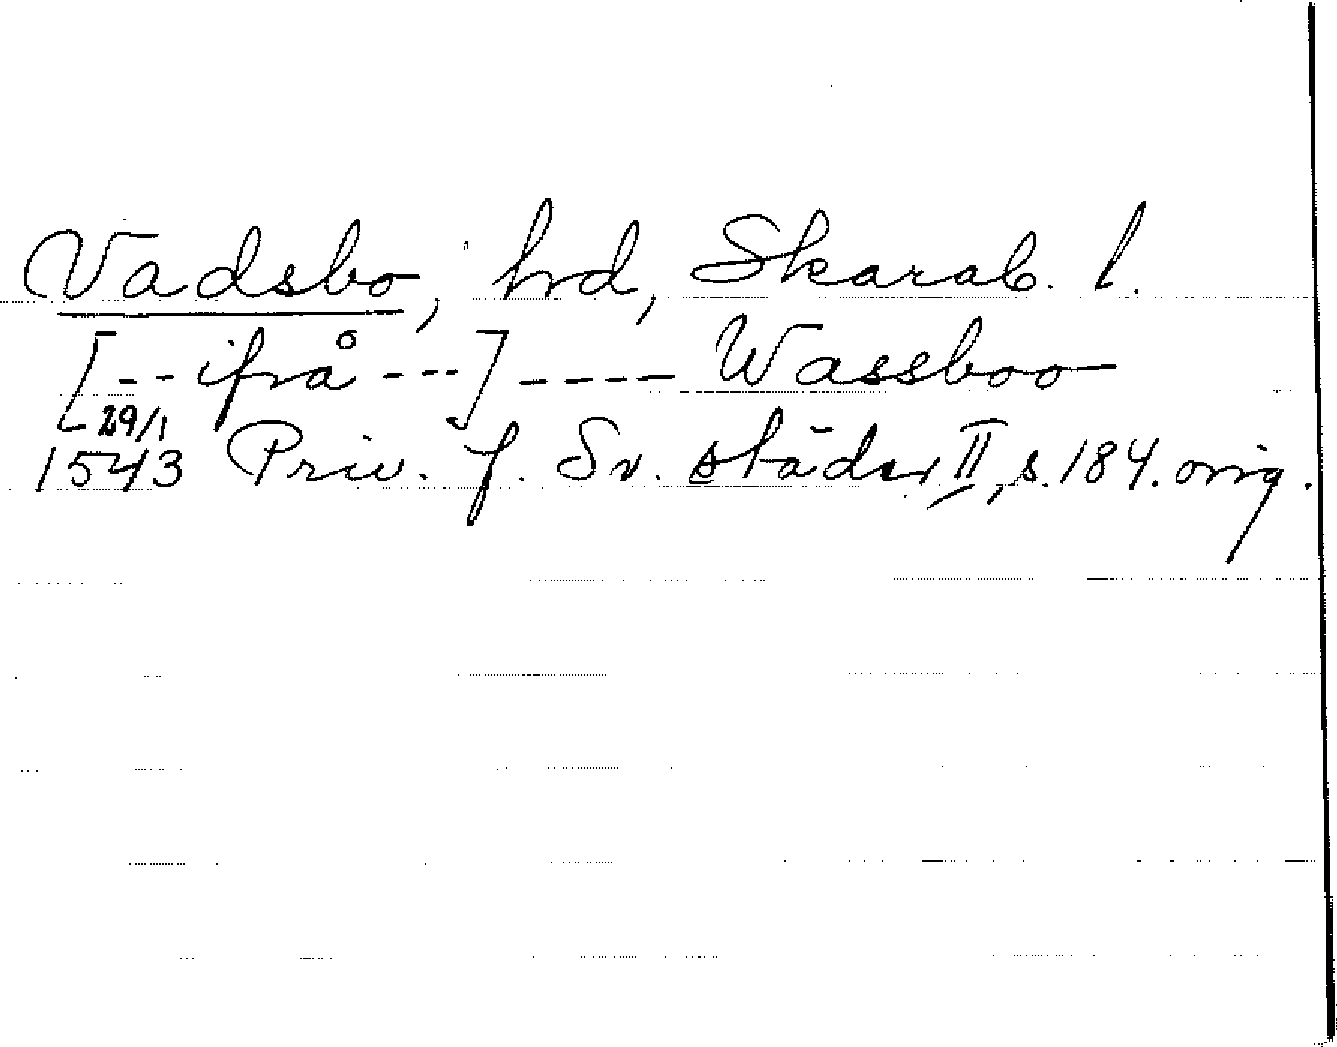 Vadsbo, hd, Skarab. l.
[--ifrå---]---- Wassboo
29/1
1543 Priv. f. Sv. städer II, s. 184. orig.